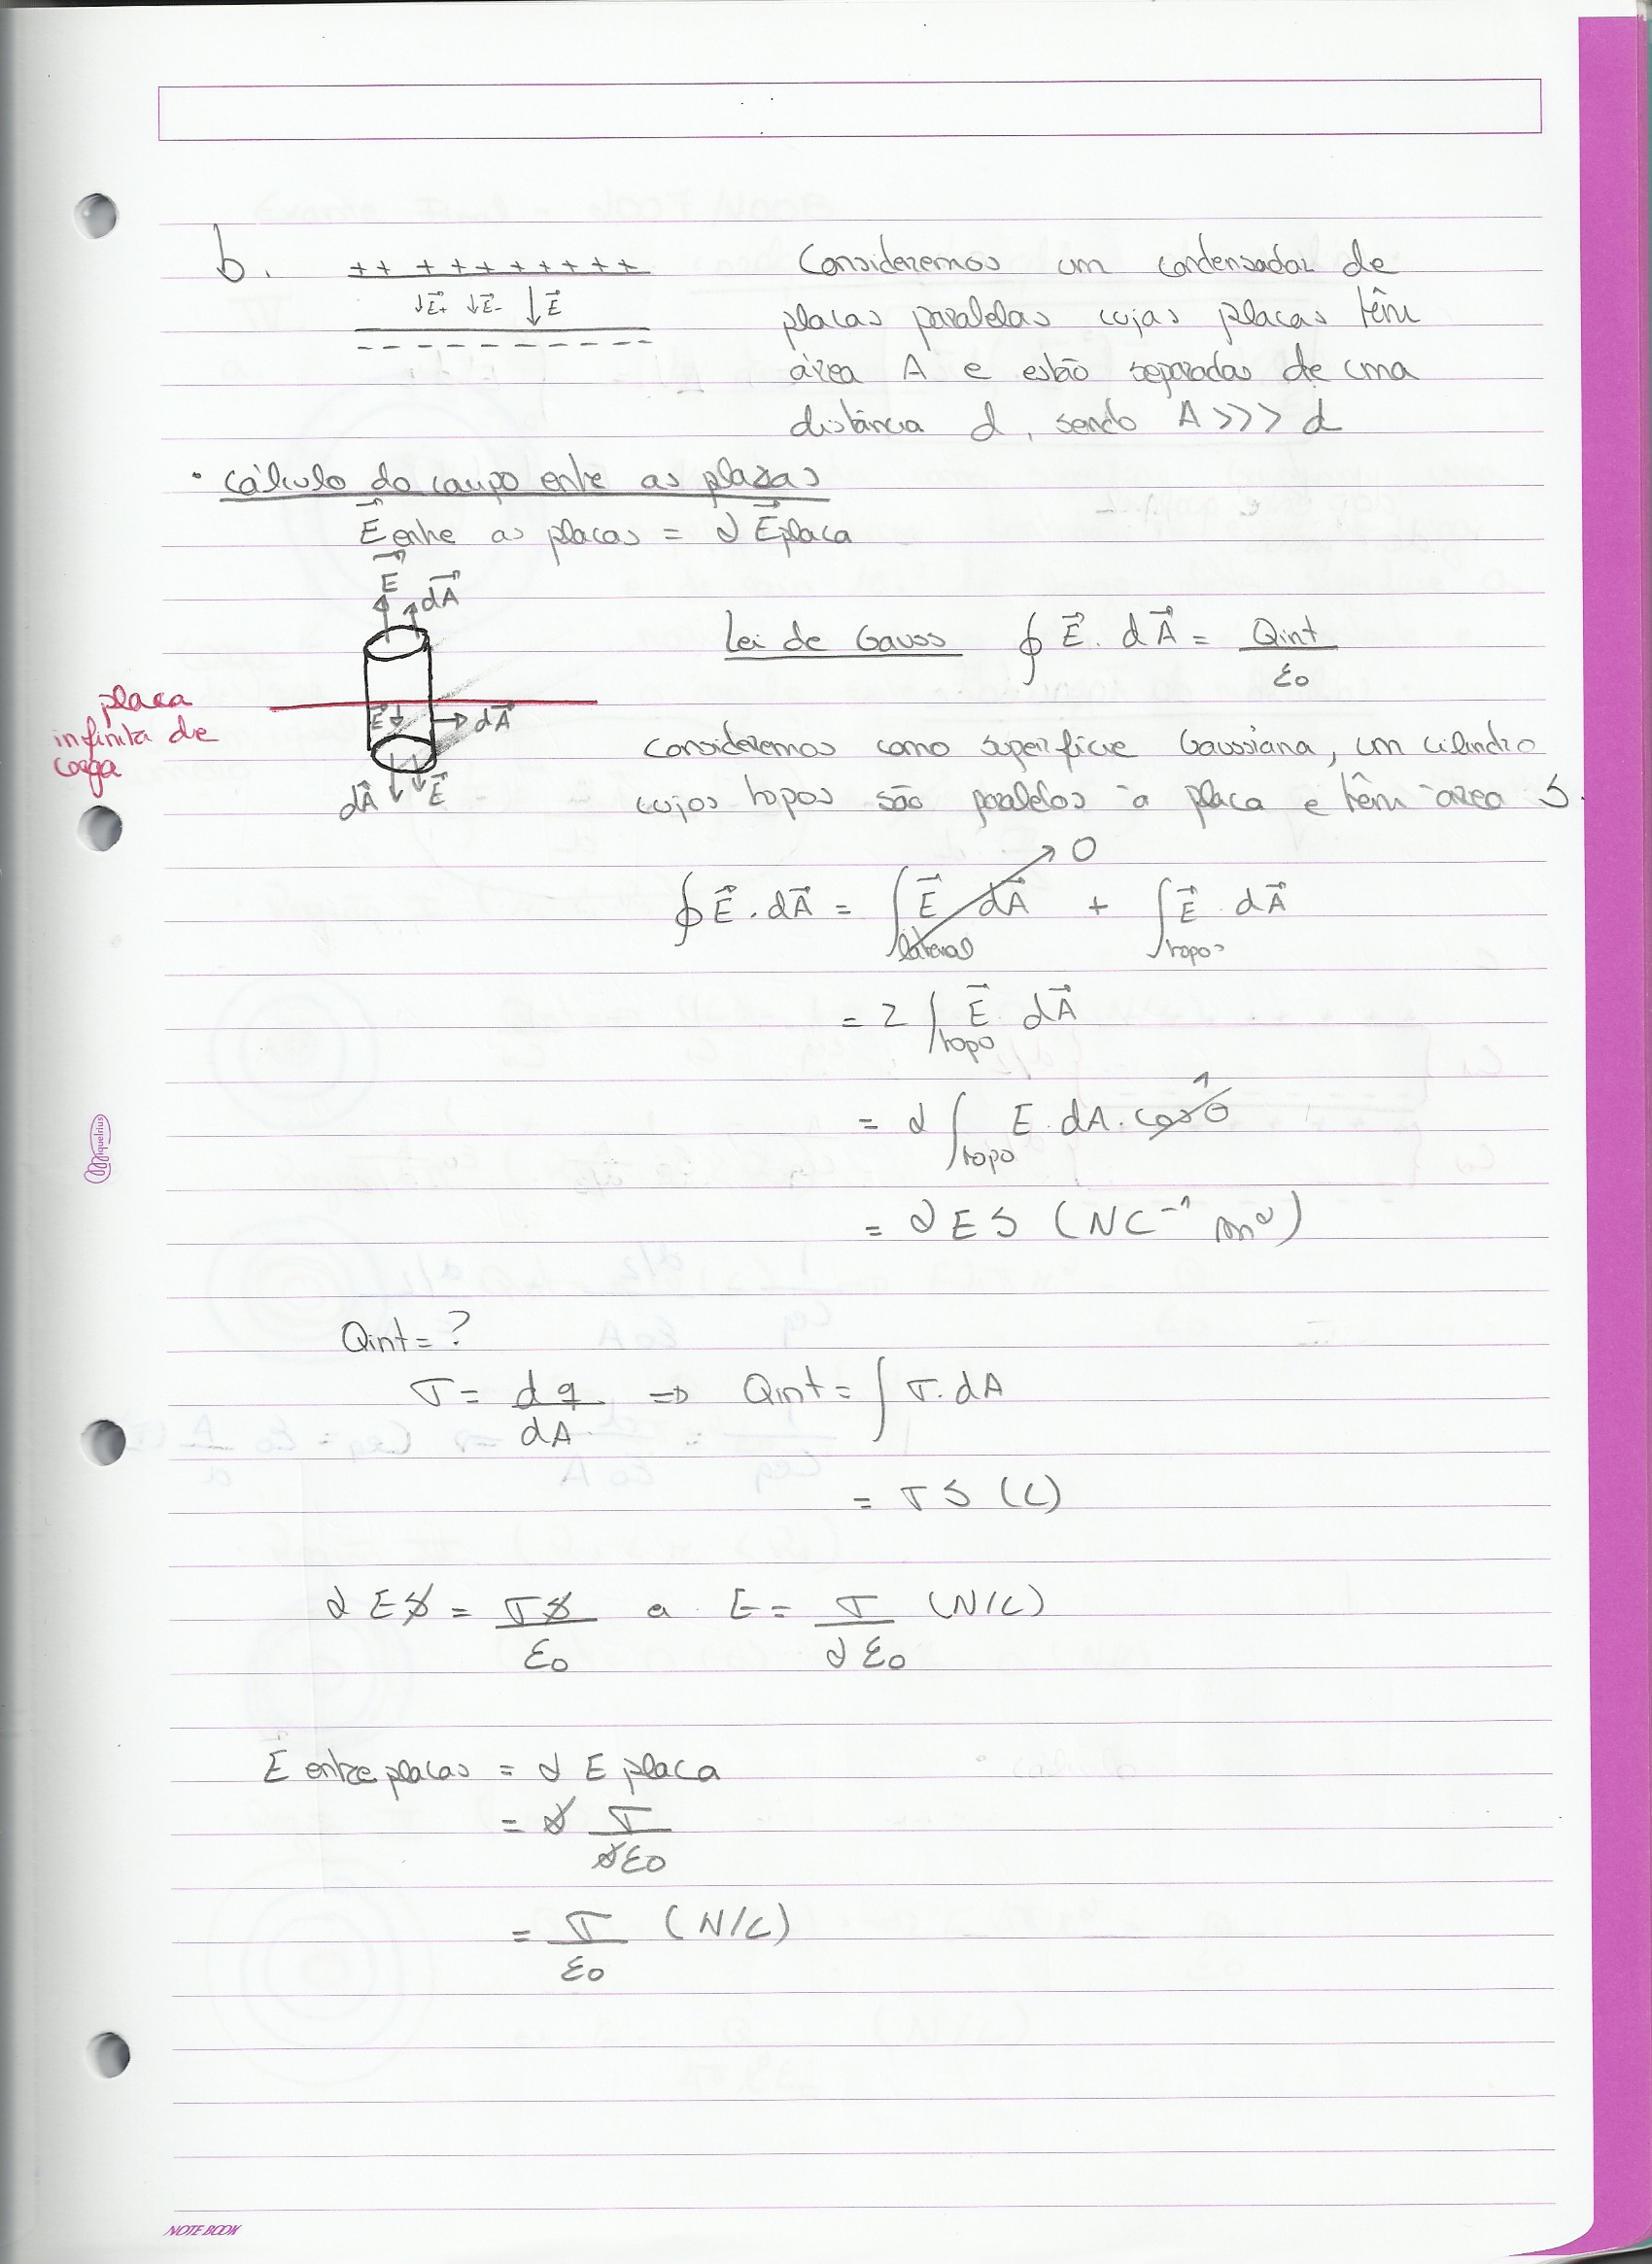 b. ++ + + + + + + + +
↓E⃗+ ↓E⃗- ↓E⃗
- - - - - - - - - -
Consideremos um condensador de
placas paralelas cujas placas têm
área A e estão separadas de uma
distância d, sendo A >>> d
• Cálculo do campo entre as placas
E⃗ entre as placas = 2 E⃗ placa
E⃗ dA⃗
Lei de Gauss ∮ E⃗ . dA⃗ = Qint / ε0
placa
infinita de
carga
E⃗ dA⃗
dA⃗ E⃗
Consideremos como superfície Gaussiana, um cilindro
cujos topos são paralelos à placa e têm área S.
∮ E⃗ . dA⃗ = ∫lateral E⃗ dA⃗ → 0 + ∫topos E⃗ . dA⃗
= 2 ∫topo E⃗ dA⃗
= 2 ∫topo E . dA . cos θ 1
= 2 E S (NC⁻¹ m²)
Qint = ?
σ = dq / dA => Qint = ∫ σ . dA
= σ S (C)
2 E S = σ S / ε0 a E = σ / 2 ε0 (N/C)
E entre placas = 2 E placa
= 2 σ / 2 ε0
= σ / ε0 (N/C)
Miquelrius
NOTE BOOK